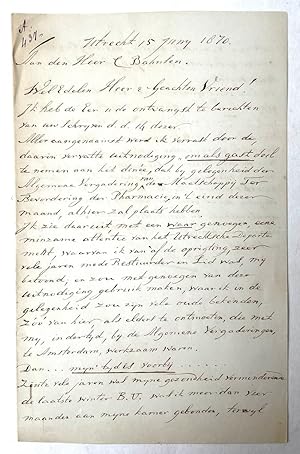 A.
431.
Utrecht 15 Juny 1870.
Aan den Heer C Bahnten.
WelEdelen Heer & Geachten Vriend!
Ik heb de Eer U de ontvangst te berichten
van uw schryven d.d. 14 dezer.
Aller aangenaamst werd ik verrast door de
daarin vervatte uitnodiging, om als gast deel
te nemen aan het diner, dat by gelegenheid der
Algemeene Vergadering van de Maatschappy Ter
Bevordering der Pharmacie, in 't eind dezer
maand, alhier zal plaats hebben.
Ik zie daaruit met een waar genoegen, eene
minzame attentie van het Utrechtsche Departe
ment, waarvan ik van af de oprigting zeer
vele jaren mede Bestuurder en Lid was, my
beloond, en zou met genoegen van deze
uitnodiging gebruik maken, waar ik in de
gelegenheid zou zyn vele oude bekenden,
zoo van hier als elders te ontmoeten, die met
my, indertyd, by de Algemeene Vergaderingen,
te Amsterdam, werkzaam waren.
Dan ... myn tyd is voorby ......
Zints vele jaren was myne gezondheid verminderende
de laatste winter B.V. was ik meer dan vier
maanden aan myne kamer gebonden, terwyl